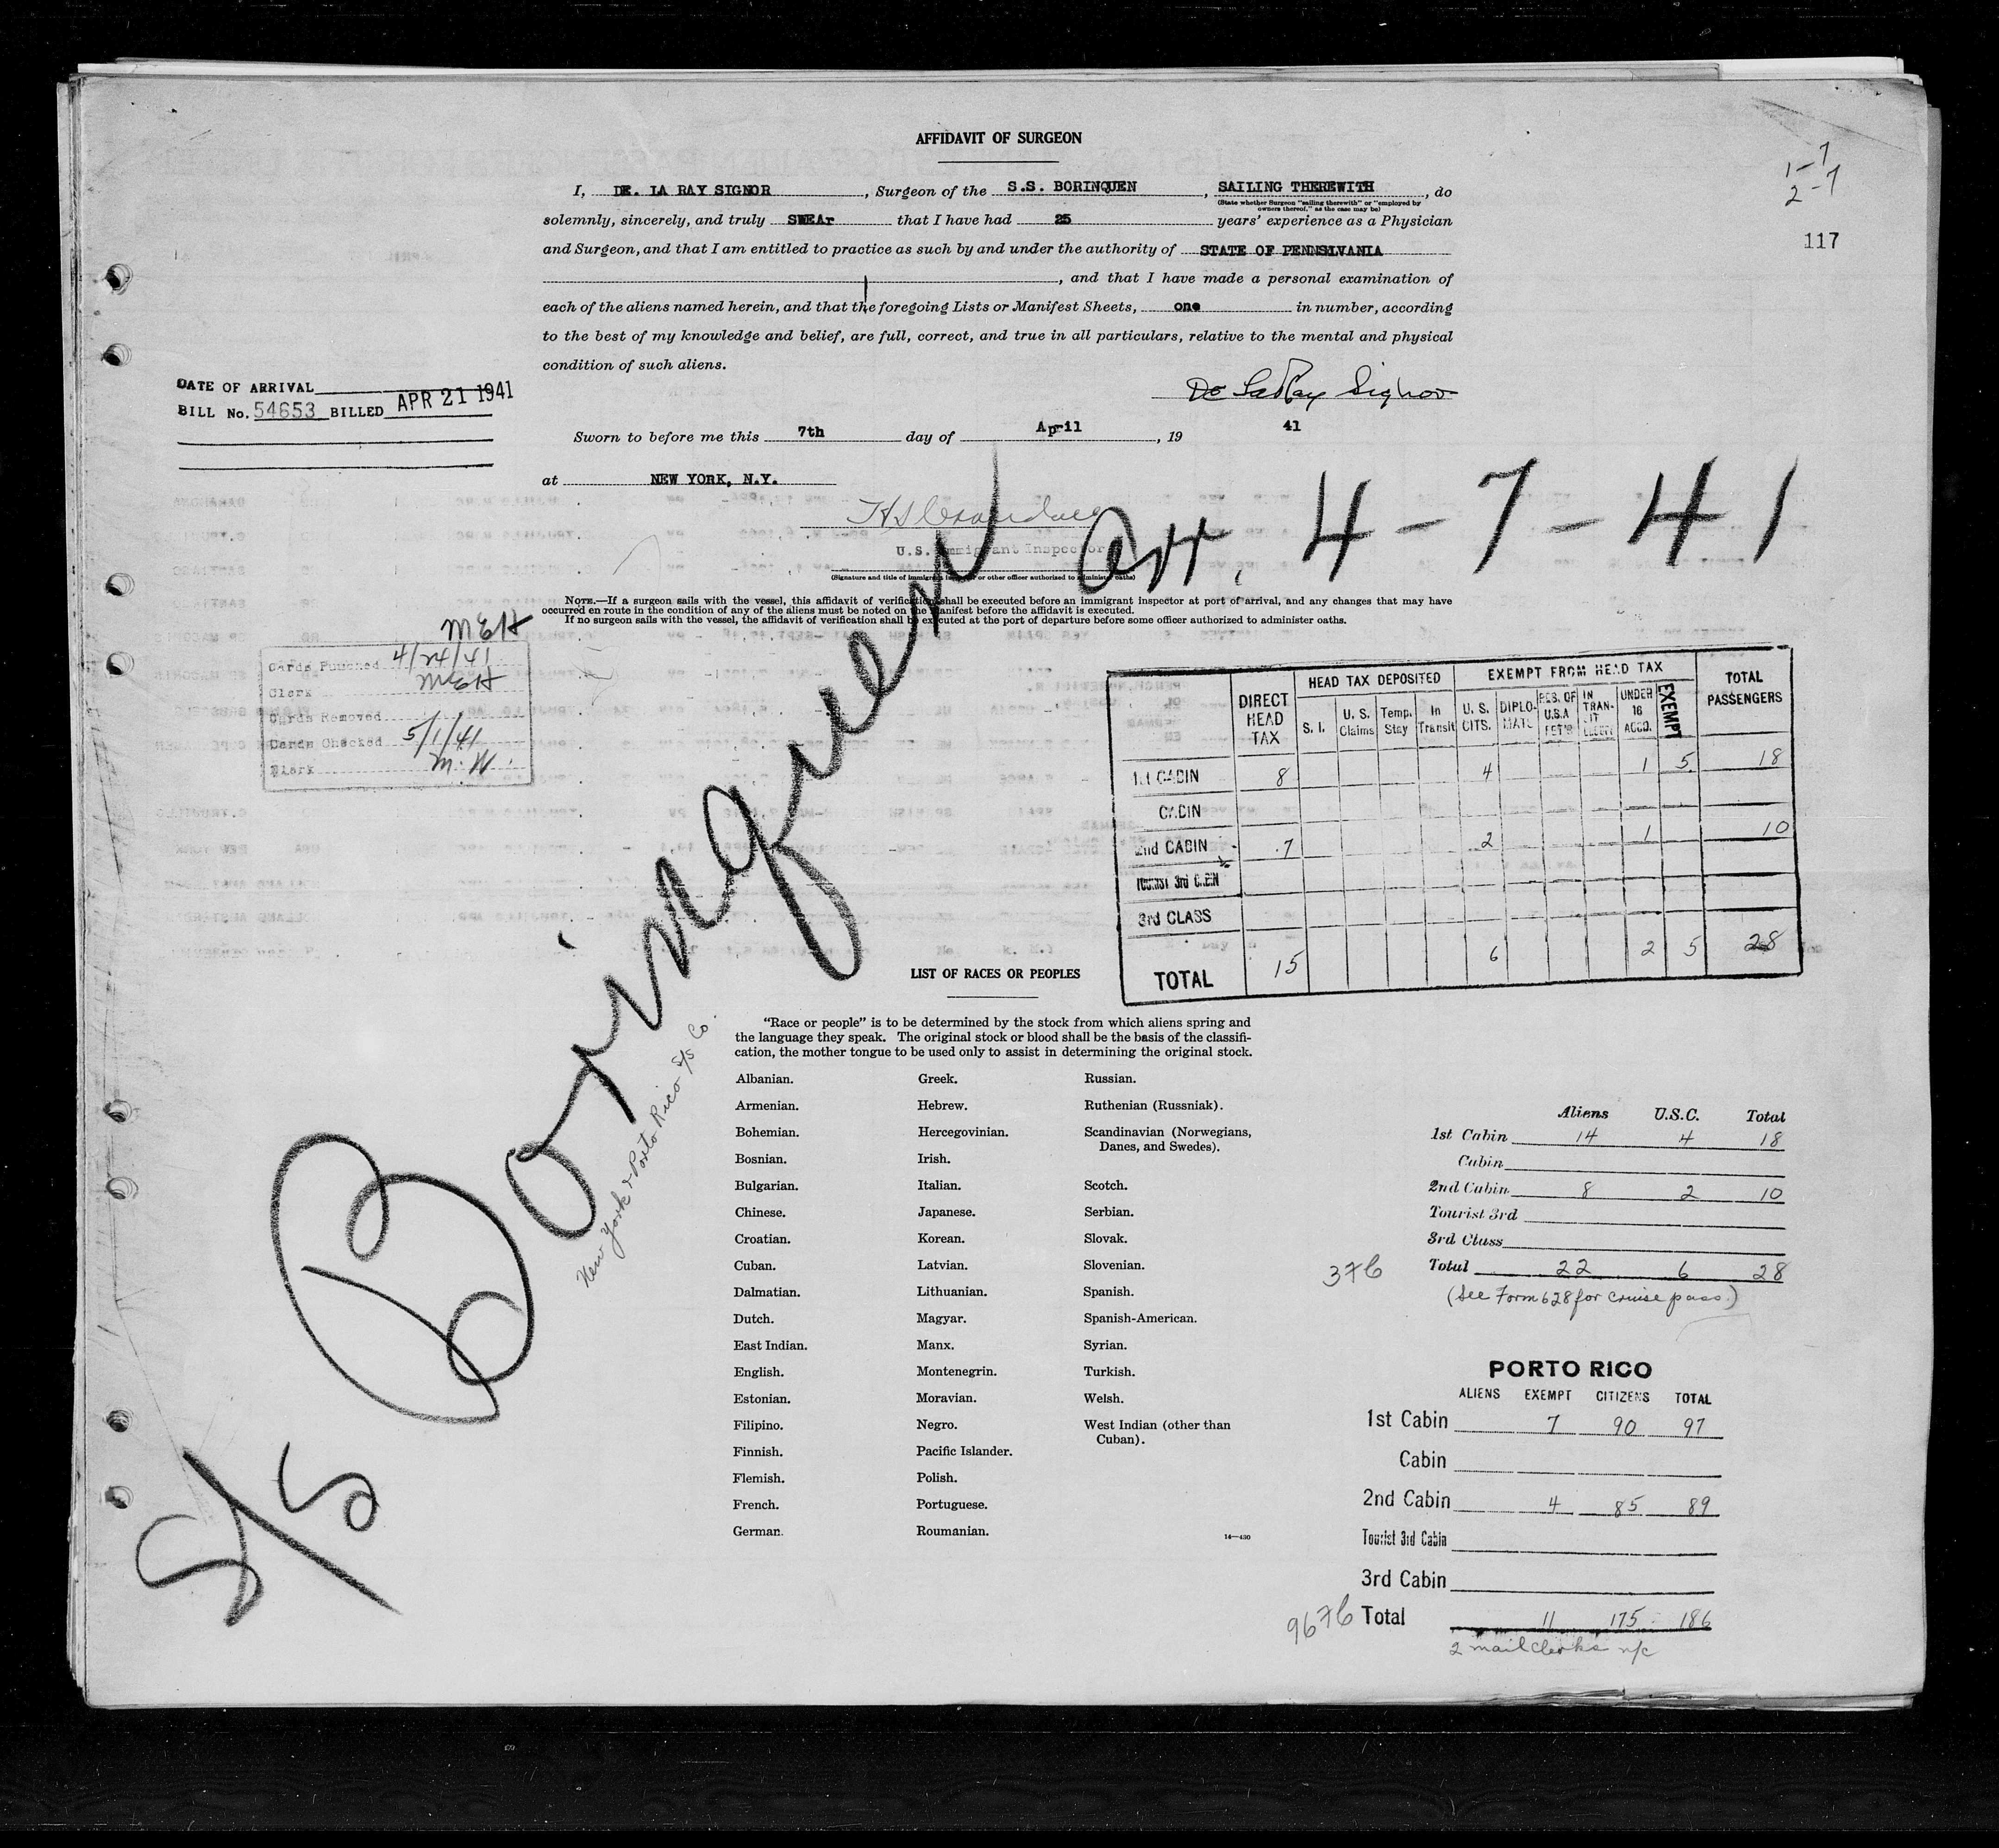 AFFIDAVIT OF SURGEON
I, DE. LA RAY SIGNOR, Surgeon of the S.S. BORINQUEN, SAILING THEREWITH, do
(State whether Surgeon "sailing therewith" or "employed by
owners thereof," as the case may be)
solemnly, sincerely, and truly SWEAr that I have had 25 years' experience as a Physician
and Surgeon, and that I am entitled to practice as such by and under the authority of STATE OF PENNSLVANIA
, and that I have made a personal examination of
each of the aliens named herein, and that the foregoing Lists or Manifest Sheets, one in number, according
to the best of my knowledge and belief, are full, correct, and true in all particulars, relative to the mental and physical
condition of such aliens.
De LaRay Signor
1-7
2-7
117
DATE OF ARRIVAL
BILL No. 54653 BILLED APR 21 1941
Sworn to before me this 7th day of April, 19 41
at NEW YORK, N.Y.
U.S. Immigrant Inspector
(Signature and title of immigrant inspector or other officer authorized to administer oaths)
Arr. 4-7-41
NOTE.—If a surgeon sails with the vessel, this affidavit of verification shall be executed before an immigrant inspector at port of arrival, and any changes that may have
occurred en route in the condition of any of the aliens must be noted on the manifest before the affidavit is executed.
If no surgeon sails with the vessel, the affidavit of verification shall be executed at the port of departure before some officer authorized to administer oaths.
MEH
Cards Punched 4/24/41
Clerk MEH
Cards Removed
Cards Checked 5/1/41
Clerk M.W.
S/S Borinquen
New York & Porto Rico S/S Co.
DIRECT HEAD TAX HEAD TAX DEPOSITED EXEMPT FROM HEAD TAX TOTAL PASSENGERS
S. I. U. S. Claims Temp. Stay In Transit U. S. CITS. DIPLOMATS RES. OF U.S.A RET'G IN TRANSIT UNDER 16 ACCD. EXEMPT
1st CABIN 8 4 1 5 18
CABIN
2nd CABIN 7 2 1 10
TOURIST 3rd CABIN
3rd CLASS
TOTAL 15 6 2 5 28
LIST OF RACES OR PEOPLES
"Race or people" is to be determined by the stock from which aliens spring and
the language they speak. The original stock or blood shall be the basis of the classifi-
cation, the mother tongue to be used only to assist in determining the original stock.
Albanian.
Armenian.
Bohemian.
Bosnian.
Bulgarian.
Chinese.
Croatian.
Cuban.
Dalmatian.
Dutch.
East Indian.
English.
Estonian.
Filipino.
Finnish.
Flemish.
French.
German.
Greek.
Hebrew.
Hercegovinian.
Irish.
Italian.
Japanese.
Korean.
Latvian.
Lithuanian.
Magyar.
Manx.
Montenegrin.
Moravian.
Negro.
Pacific Islander.
Polish.
Portuguese.
Roumanian.
Russian.
Ruthenian (Russniak).
Scandinavian (Norwegians,
Danes, and Swedes).
Scotch.
Serbian.
Slovak.
Slovenian.
Spanish.
Spanish-American.
Syrian.
Turkish.
Welsh.
West Indian (other than
Cuban).
14—430
Aliens U.S.C. Total
1st Cabin 14 4 18
Cabin
2nd Cabin 8 2 10
Tourist 3rd
3rd Class
376 Total 22 6 28
(See Form 628 for cruise pass.)
PORTO RICO
ALIENS EXEMPT CITIZENS TOTAL
1st Cabin 7 90 97
Cabin
2nd Cabin 4 85 89
Tourist 3rd Cabin
3rd Cabin
9676 Total 11 175 186
2 mail clerks n/c